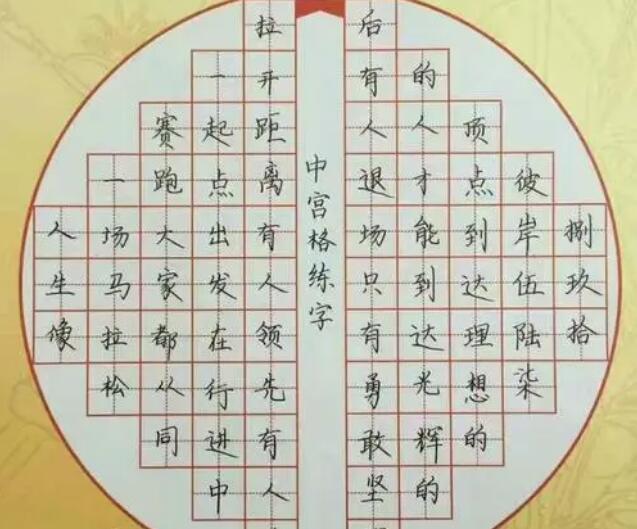 人生像
一场马拉松
赛跑大家都从同
一起点出发在行进中
拉开距离有人领先有人
中宫格练字
后有人退场只有勇敢坚
的人才能到达光辉的
顶点到达理想的
彼岸伍陆柒
捌玖拾